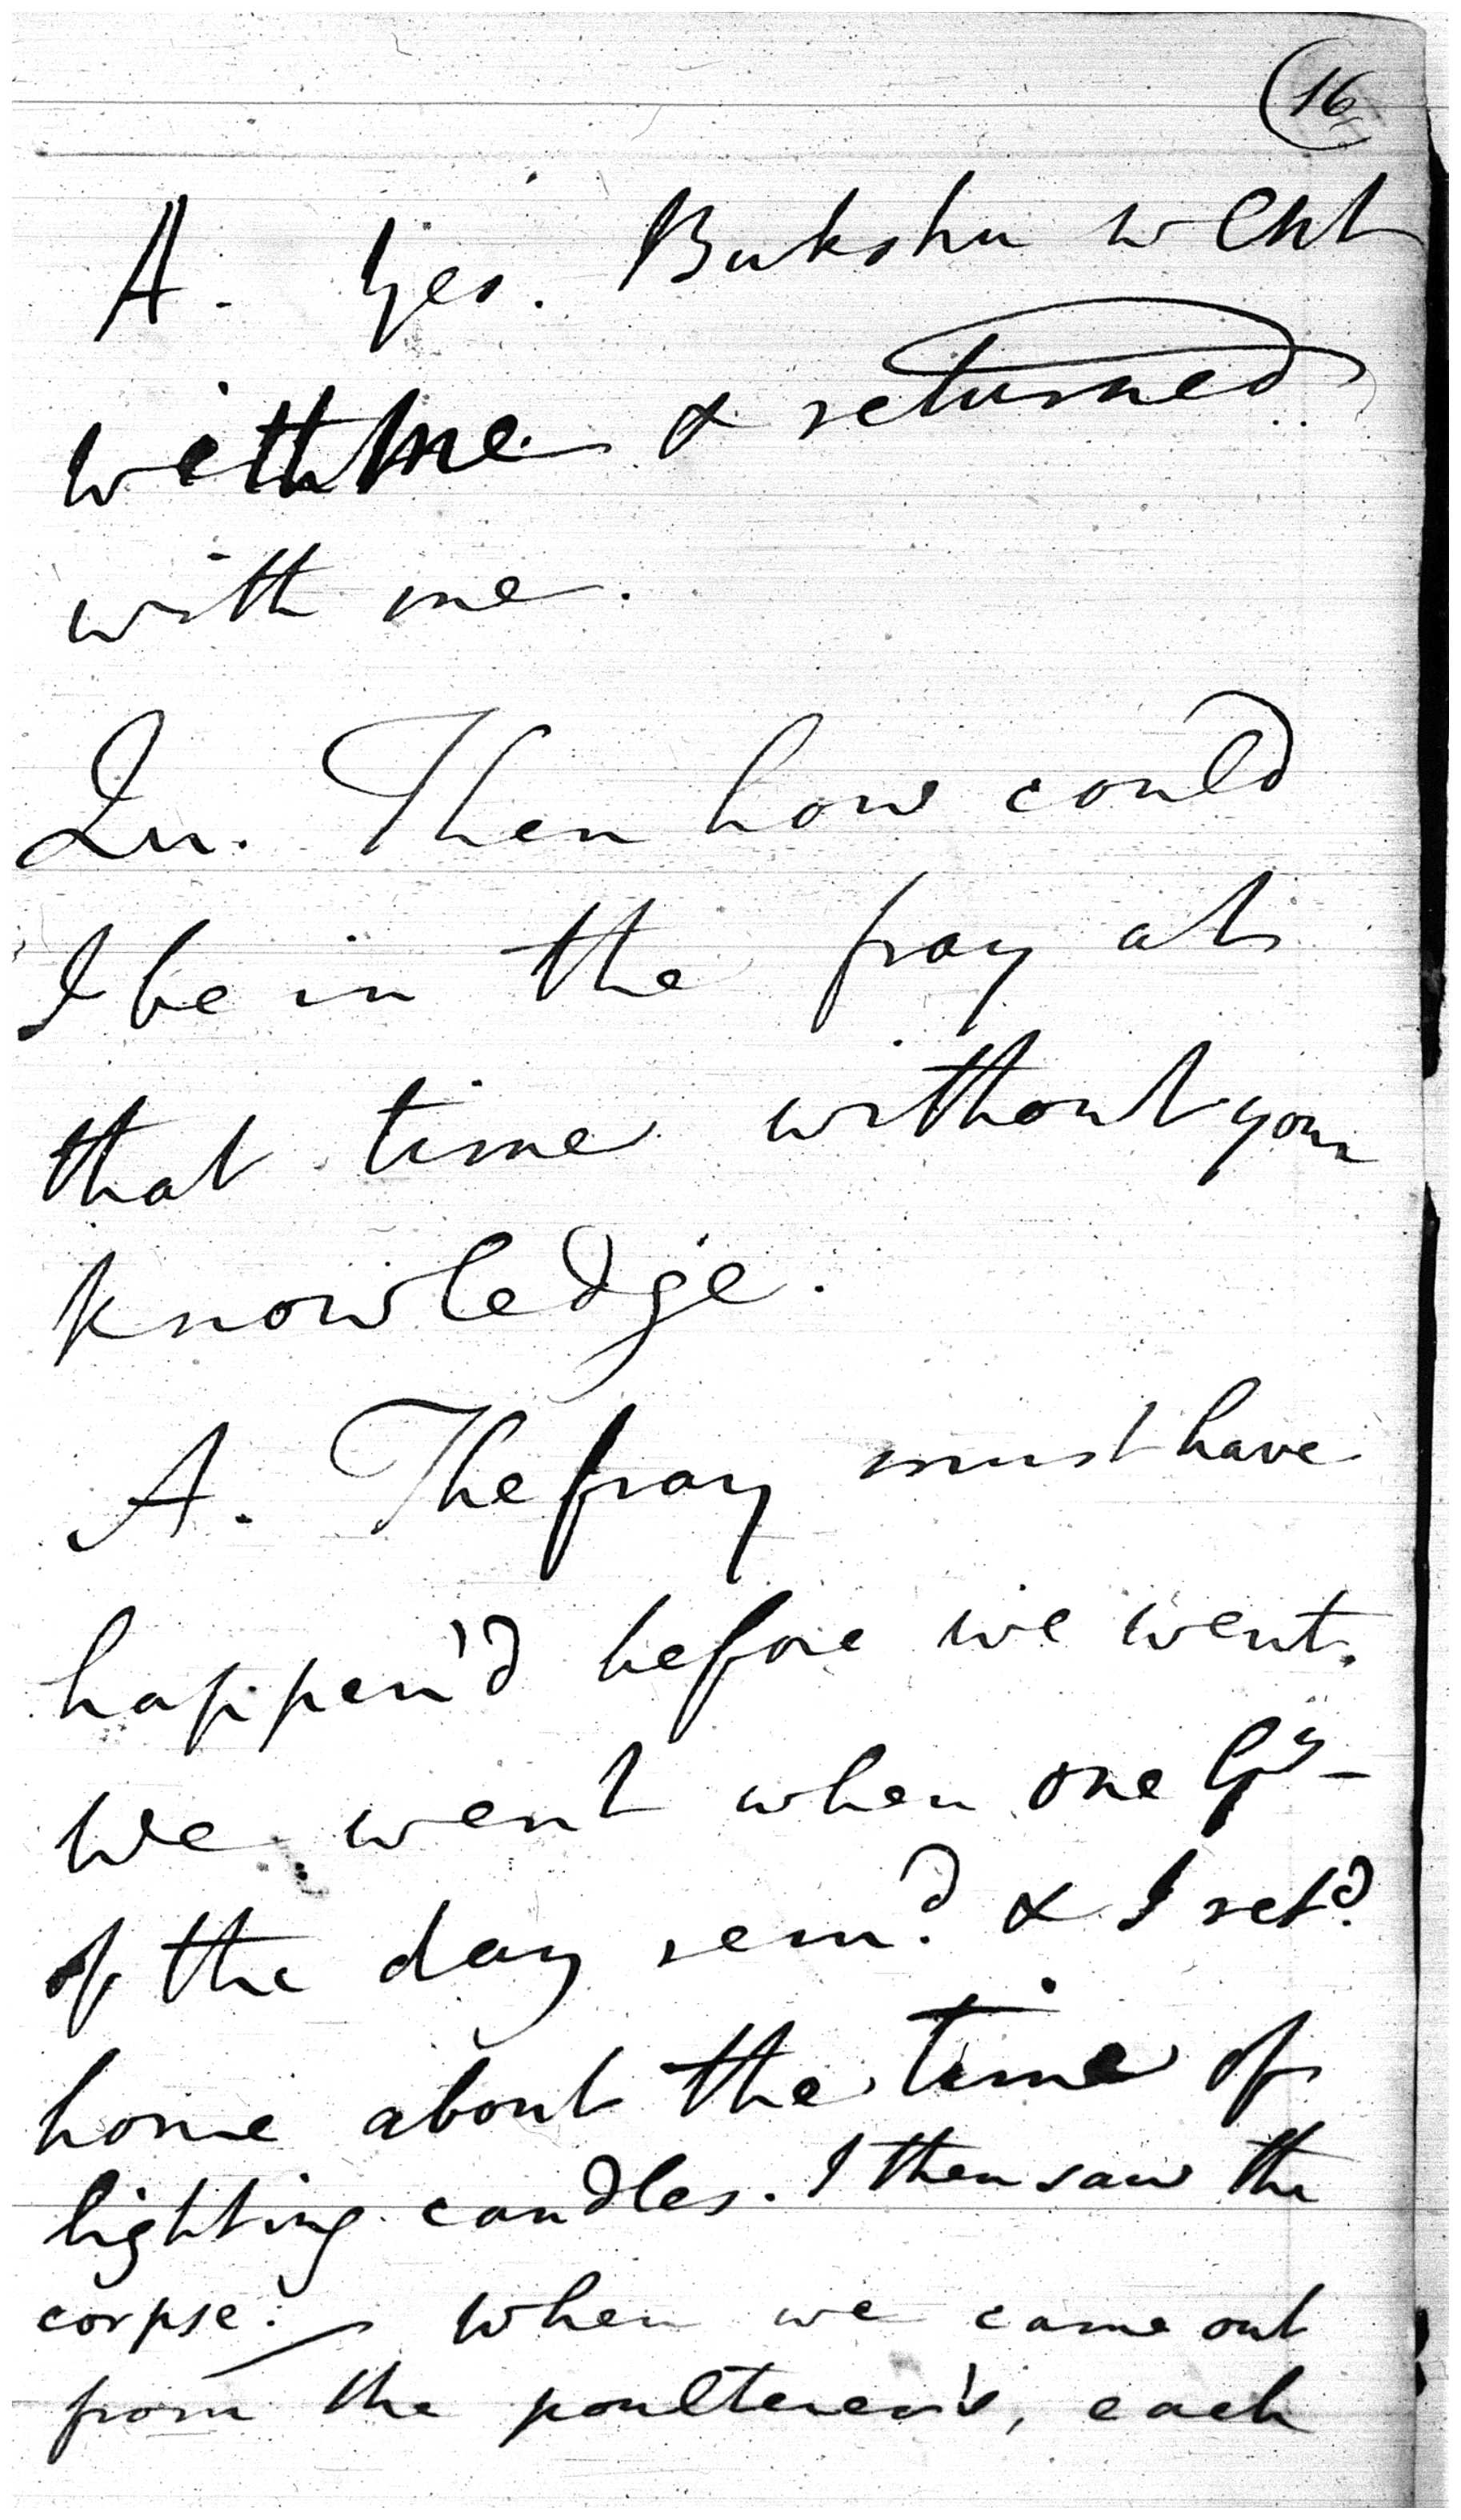 16
A. Yes. Bukshu went
with me & returned
with me.
Qu. Then how could
I be in the fray at
that time without your
knowledge.
A. The fray must have
happen'd before we went.
We went when one Gy-
of the day rem.d & I ret.d
home about the time of
lighting candles. I then saw the
corpse. when we came out
from the poulterer's, each